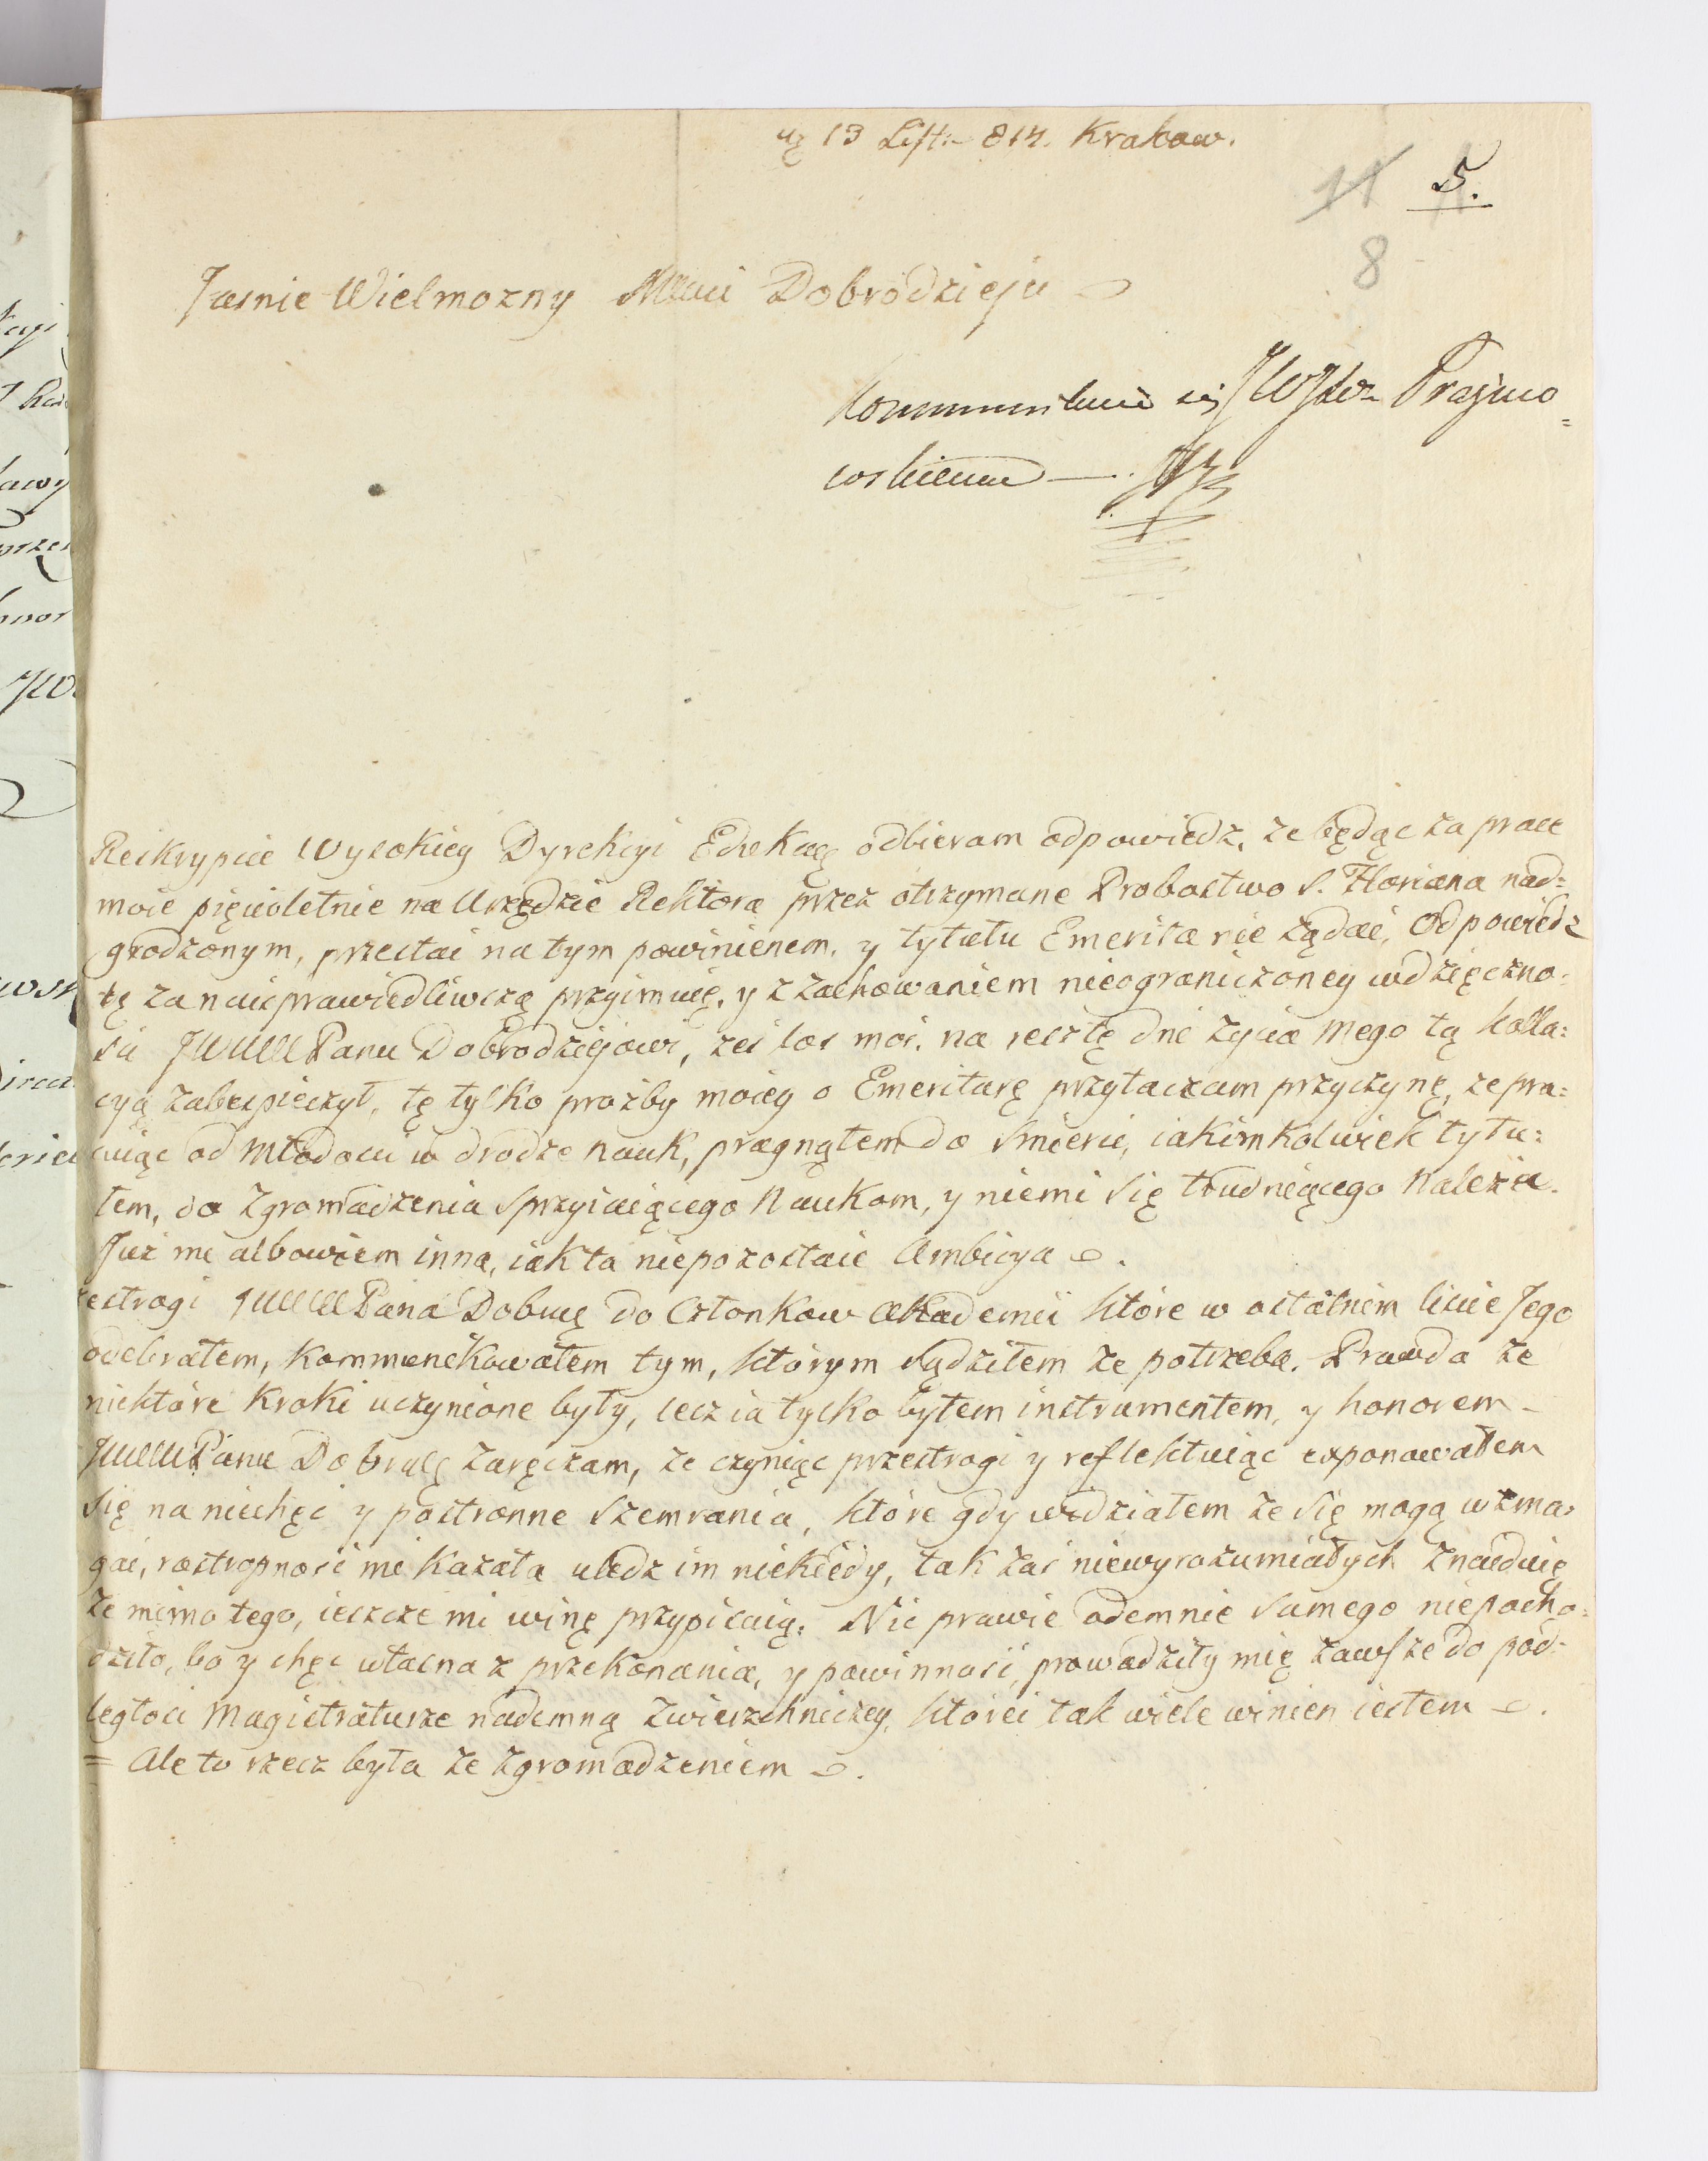 13 List: 814. Krakow.
11 5.
8
Jasnie Wielmozny Mci Dobrodzieju
JW Prazmo=
wskiemu
Reskrypcie Wysokiey Dyrekcyi odbieram odpowiedz, ze będąc za prace
moie pięcioletnie na Urzędzie Rektora przez otrzymane Probostwo S. Floriana nad=
grodzonym, przestać na tym powinienem, y tytułu Emerita nie żądać, Odpowiedz
tę za naisprawiedliwszą przyimuię, y z zachowaniem nieograniczoney wdzięczno=
ści Panu Dobrodziejowi, żeś los mói na resztę dni życia mego tą kolla=
cyą zabespieczył, tę tylko prozby moiey o Emeriturę przytaczam przyczynę, ze pra=
cuiąc od młodości w drodze nauk, pragnąłem do śmierci, iakimkolwiek tytu=
łem, do Zgromadzenia sprzyiaiącego Naukom, y niemi się trudniącego należeć.
Już mi albowiem inna, iak ta niepozostaie Ambicya.
estrogi Pana do Członkow Akademii które w ostatnim liście Jego
odebrałem, kommunikowałem tym, którym sądziłem ze potrzeba. Prawda ze
niektóre kroki uczynione były, lecz ia tylko byłem instrumentem, y honorem
Panu zaręczam, ze czyniąc przestrogi y reflektuiąc exponowałem
się na niechęć y postronne szemrania, które gdy widziałem ze się mogą wzma=
gać, rostropność mi kazała uledz im niekiedy, tak zaś niewyrozumiałych znayduię
ze mimo tego, ieszcze mi winę przypisuią. Nic prawie odemnie samego niepocho=
dziło, bo y chęć własna z przekonania, y powinność, prowadziły mię zawsze do pod=
ległości Magistraturze nademną zwierzchniczey, którei tak wiele winien iestem.
= Ale to rzecz była ze zgromadzeniem.